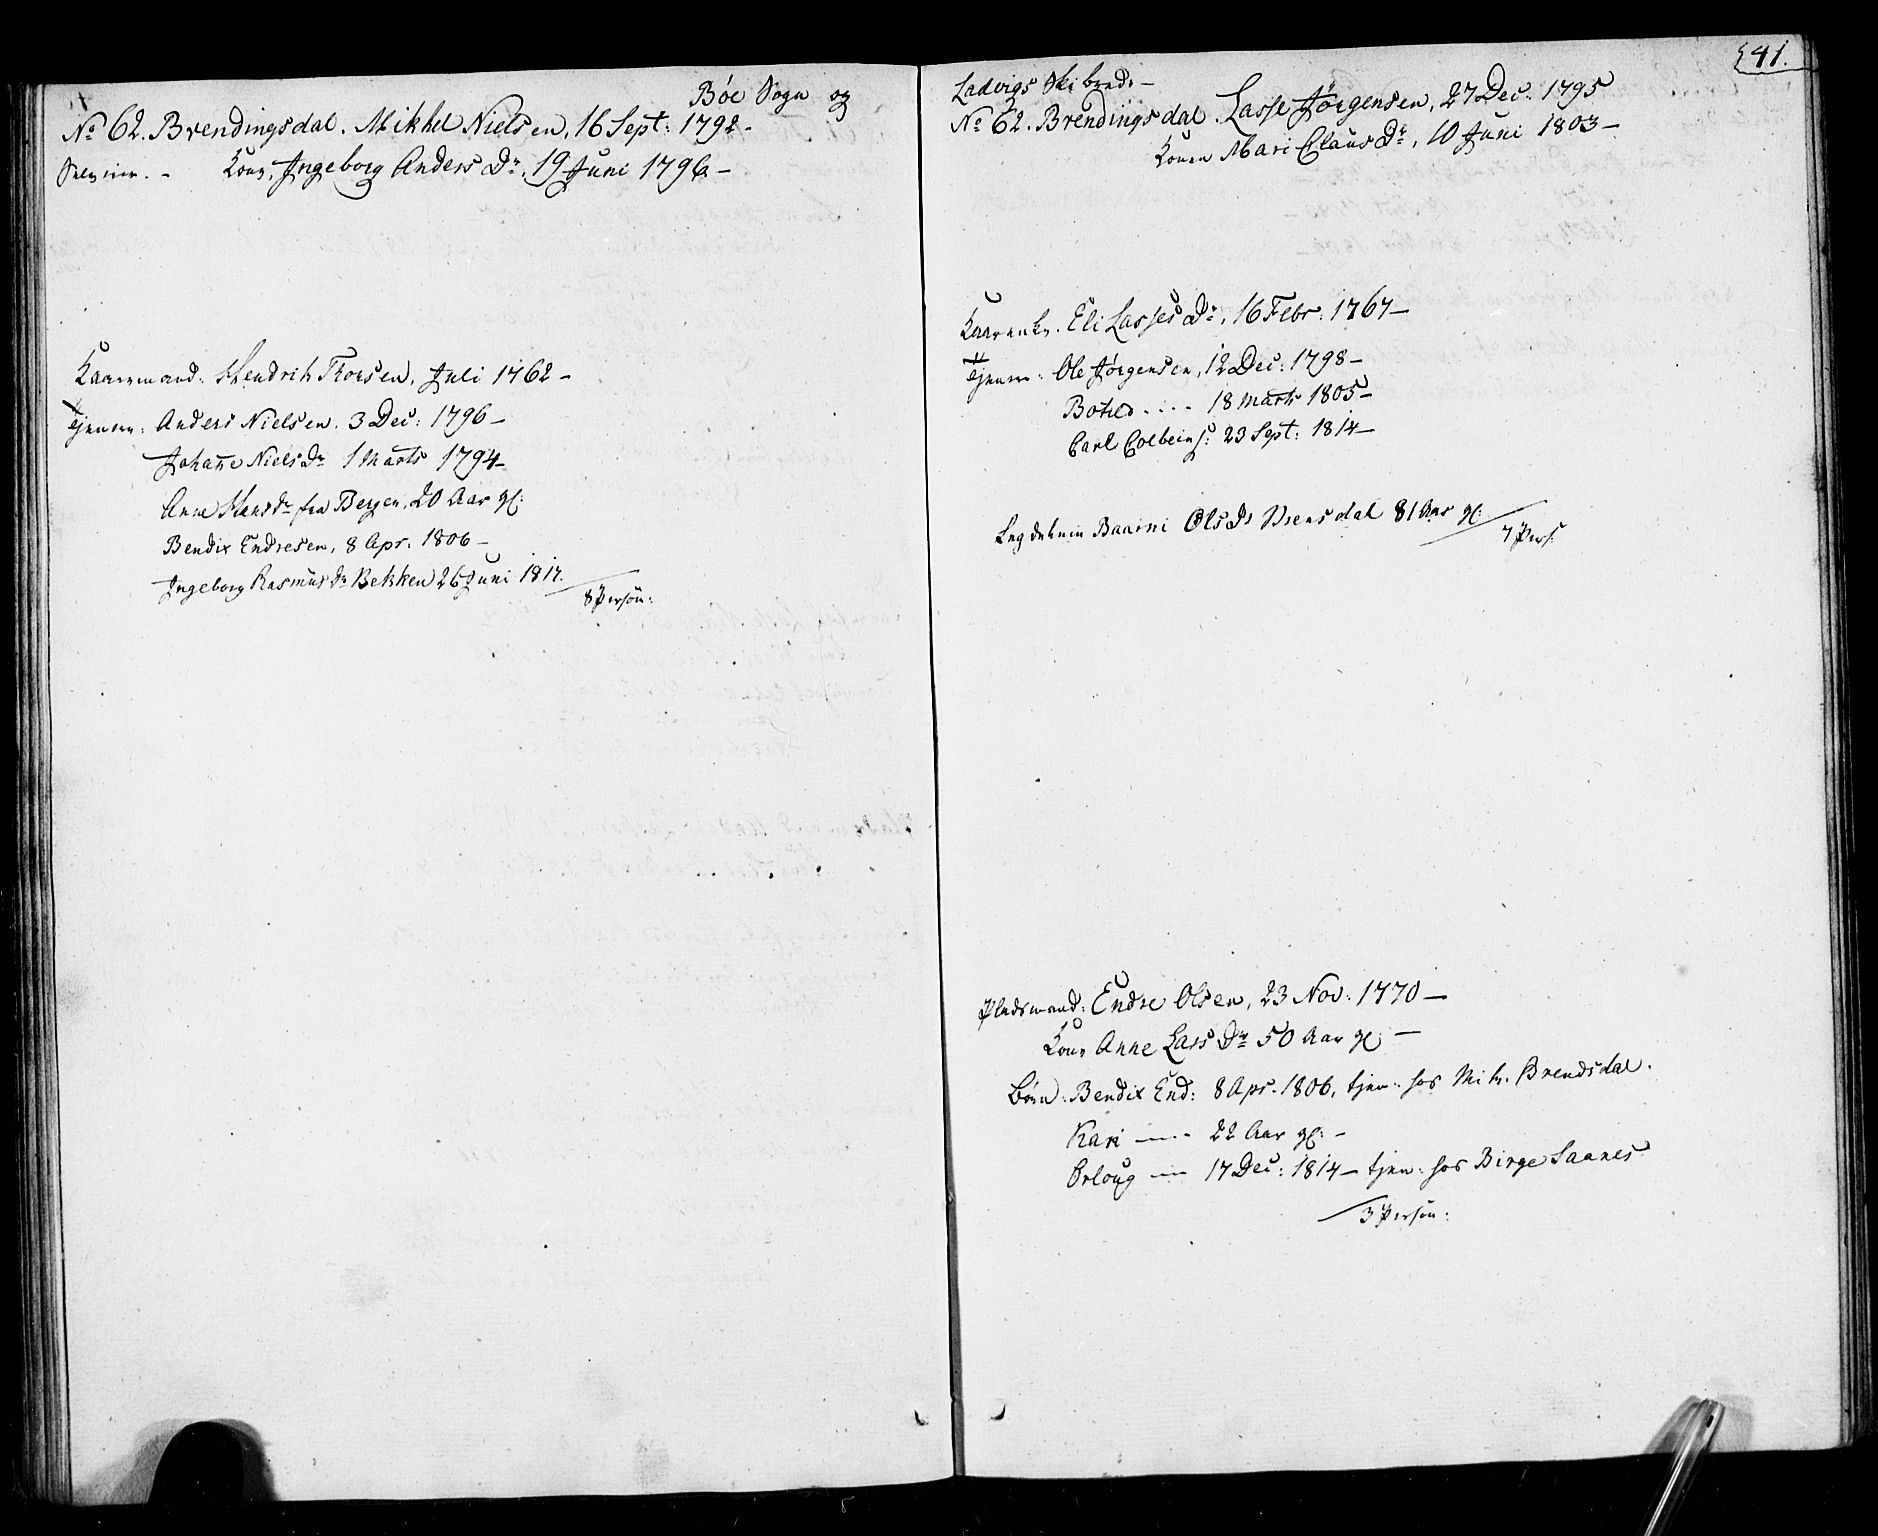 Bøe Sogn og
No 62. Brendingsdal. Mikkel Nielsen, 16 Sept: 1792.
Kone, Ingeborg Anders Dr. 19 Juni 1796 –
Kaarmand: Hendrik Thorsen, Juli 1762 –
Tjenere: Anders Nielsen. 3 Dec: 1796 –
Johanne Niels Dr 1 Marts 1794 –
Anne Hans dr fra Bergen, 20 Aar gl:
Bendix Endresen, 8 Apr. 1806 –
Ingeborg Rasmus Dr Bekken 26 Juni 1817.
8 Person:
41.
Ladvigs Skibred: –
No 62. Brendingsdal. Lasse Jørgensen, 27 Dec: 1795
Konen Mari Claus Dr, 10 Juni 1803 –
Kaarenk. Eli Lasses Dr, 16 Febr: 1767 –
Tjenere: Ole Jørgensen, 12 Dec: 1798 –
Boted .... 18 Marts 1805 –
Carl Colbeins: 23 Sept: 1814 –
Olsdr 81 Aar gl:
7 Pers:
Pladsmand: Endre Olsen, 23 Nov: 1770 –
Kone Anne Lars Dr 50 Aar gl: –
Børn: Bendix End: 8 Apr. 1806, tjen: hos Mik. Brendsdal.
Kari —— 22 Aar gl: –
Orloug —— 17 Dec: 1814 – tjen: hos Birge Saanes
3 Person: